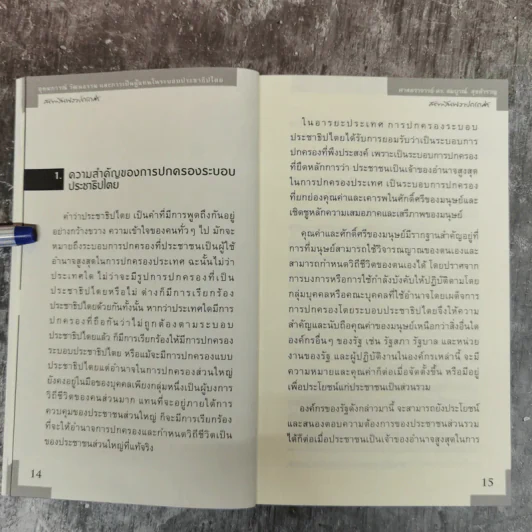 อุดมการณ์ วัฒนธรรม และการเป็นผู้แทนในระบอบประชาธิปไตย
1. ความสำคัญของการปกครองระบอบ
ประชาธิปไตย
คำว่าประชาธิปไตย เป็นคำที่มีการพูดถึงกันอยู่
อย่างกว้างขวาง ความเข้าใจของคนทั่วๆ ไป มักจะ
หมายถึงระบอบการปกครองที่ประชาชนเป็นผู้ใช้
อำนาจสูงสุดในการปกครองประเทศ ฉะนั้นไม่ว่า
ประเทศใด ไม่ว่าจะมีรูปการปกครองที่เป็น
ประชาธิปไตยหรือไม่ ต่างก็มีการเรียกร้อง
ประชาธิปไตยด้วยกันทั้งนั้น หากว่าประเทศใดมีการ
ปกครองที่ถือกันว่าไม่ถูกต้องตามระบอบ
ประชาธิปไตยแล้ว ก็มีการเรียกร้องให้มีการปกครอง
ระบอบประชาธิปไตย หรือแม้จะมีการปกครองแบบ
ประชาธิปไตยแต่อำนาจในการปกครองส่วนใหญ่
ยังคงอยู่ในมือของบุคคลเพียงกลุ่มหนึ่งเป็นผู้บงการ
วิถีชีวิตของคนส่วนมาก แทนที่จะอยู่ภายใต้การ
ควบคุมของประชาชนส่วนใหญ่ ก็จะมีการเรียกร้อง
ที่จะให้อำนาจการปกครองและกำหนดวิถีชีวิตเป็น
ของประชาชนส่วนใหญ่ที่แท้จริง
14
ศาสตราจารย์ ดร. สมบูรณ์ สุขสำราญ
ในอารยะประเทศ การปกครองระบอบ
ประชาธิปไตยได้รับการยอมรับว่าเป็นระบอบการ
ปกครองที่พึงประสงค์ เพราะเป็นระบอบการปกครอง
ที่ยึดหลักการว่า ประชาชนเป็นเจ้าของอำนาจสูงสุด
ในการปกครองประเทศ เป็นระบอบการปกครอง
ที่ยกย่องคุณค่าและเคารพในศักดิ์ศรีของมนุษย์และ
เชิดชูหลักความเสมอภาคและเสรีภาพของมนุษย์
คุณค่าและศักดิ์ศรีของมนุษย์มีรากฐานสำคัญอยู่ที่
การที่มนุษย์สามารถใช้วิจารณญาณของตนเองและ
สามารถกำหนดวิถีชีวิตของตนเองได้ โดยปราศจาก
การบงการหรือการใช้กำลังบังคับให้ปฏิบัติตามโดย
กลุ่มบุคคลหรือคณะบุคคลที่ใช้อำนาจโดยเผด็จการ
การปกครองโดยระบอบประชาธิปไตยจึงให้ความ
สำคัญและนับถือคุณค่าของมนุษย์เหนือกว่าสิ่งอื่นใด
องค์กรอื่นๆ ของรัฐ เช่น รัฐสภา รัฐบาล และหน่วย
งานของรัฐ และผู้ปฏิบัติงานในองค์กรเหล่านี้ จะมี
ความหมายและคุณค่าก็ต่อเมื่อจัดตั้งขึ้น หรือมีอยู่
เพื่อประโยชน์แก่ประชาชนเป็นส่วนรวม
องค์กรของรัฐดังกล่าวมานี้ จะสามารถยังประโยชน์
และสนองตอบความต้องการของประชาชนส่วนรวม
ได้ก็ต่อเมื่อประชาชนเป็นเจ้าของอำนาจสูงสุดในการ
15